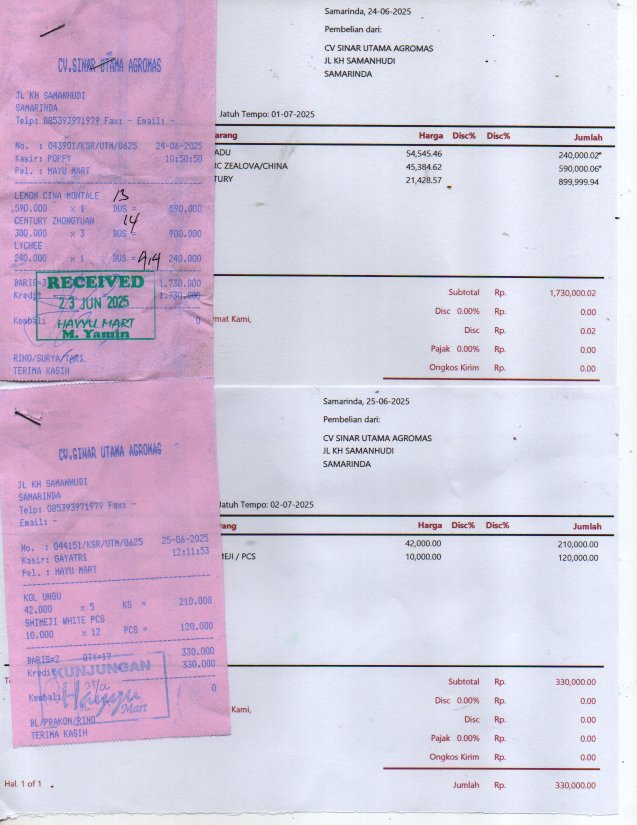 Samarinda, 24-06-2025
Pembelian dari:
CV SINAR UTAMA AGROMAS
JL KH SAMANHUDI
SAMARINDA
Jatuh Tempo: 01-07-2025
arang Harga Disc% Disc% Jumlah
ADU 54,545.46 240,000.02
IC ZEALOVA/CHINA 45,384.62 590,000.06
TURY 21,428.57 899,999.94
Subtotal Rp. 1,730,000.02
Disc 0.00% Rp. 0.00
rmat Kami,
Disc Rp. 0.02
Pajak 0.00% Rp. 0.00
Ongkos Kirim Rp. 0.00
CV.SINAR UTAMA AGROMAS
JL KH SAMANHUDI
SAMARINDA
Telp: 085393971979 Fax: - Email: -
No. : 043901/KSR/UTM/0625 24-06-2025
Kasir: POPPY 10:50:50
Pel. : HAYU MART
LEMON CINA MONTALE 13
590.000 x 1 DUS = 590.000
CENTURY ZHONGYUAN 14
300.000 x 3 DUS = 900.000
LYCHEE
240.000 x 1 DUS = 240.000
BARIS=3 1.730.000
Kredit 1.730.000
Kembali 0
RECEIVED
23 JUN 2025
HAYYU MART
M. Yamin
RINO/SURYA/TARI
TERIMA KASIH
Samarinda, 25-06-2025
Pembelian dari:
CV SINAR UTAMA AGROMAS
JL KH SAMANHUDI
SAMARINDA
Jatuh Tempo: 02-07-2025
rang Harga Disc% Disc% Jumlah
42,000.00 210,000.00
MEJI / PCS 10,000.00 120,000.00
Subtotal Rp. 330,000.00
Disc 0.00% Rp. 0.00
Kami,
Disc Rp. 0.00
Pajak 0.00% Rp. 0.00
Ongkos Kirim Rp. 0.00
Jumlah Rp. 330,000.00
CV.SINAR UTAMA AGROMAS
JL KH SAMANHUDI
SAMARINDA
Telp: 085393971979 Fax: -
Email: -
No. : 044151/KSR/UTM/0625 25-06-2025
Kasir: GAYATRI 12:11:53
Pel. : HAYU MART
KOL UNGU
42.000 x 5 KG = 210.000
SHIMEJI WHITE PCS
10.000 x 12 PCS = 120.000
BARIS=2 QTY=17 330.000
Kredit 330.000
Kembali 0
KUNJUNGAN
Hayyu
Mart
BL/PRAKON/RINO
TERIMA KASIH
Hal. 1 of 1